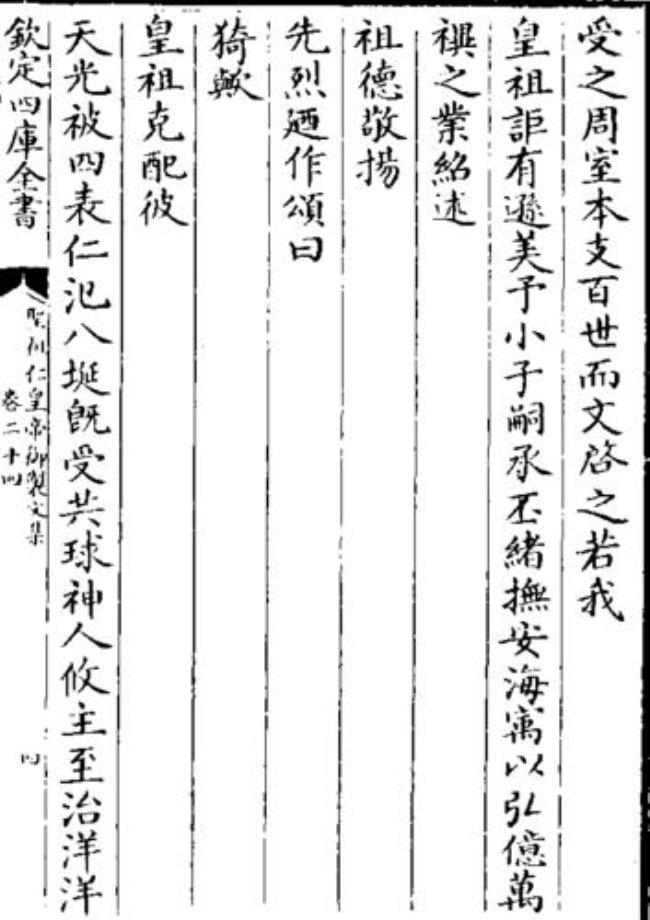 受之周室本支百世而文啓之若我
皇祖詎有遜美予小子嗣承丕緒撫安海寓以弘億萬
禩之業紹述
祖德敬揚
先烈廼作頌曰
猗歟
皇祖克配彼
天光被四表仁汜八埏既受共球神人攸主至治洋洋
欽定四庫全書
聖祖仁皇帝御製文集
卷二十四
四